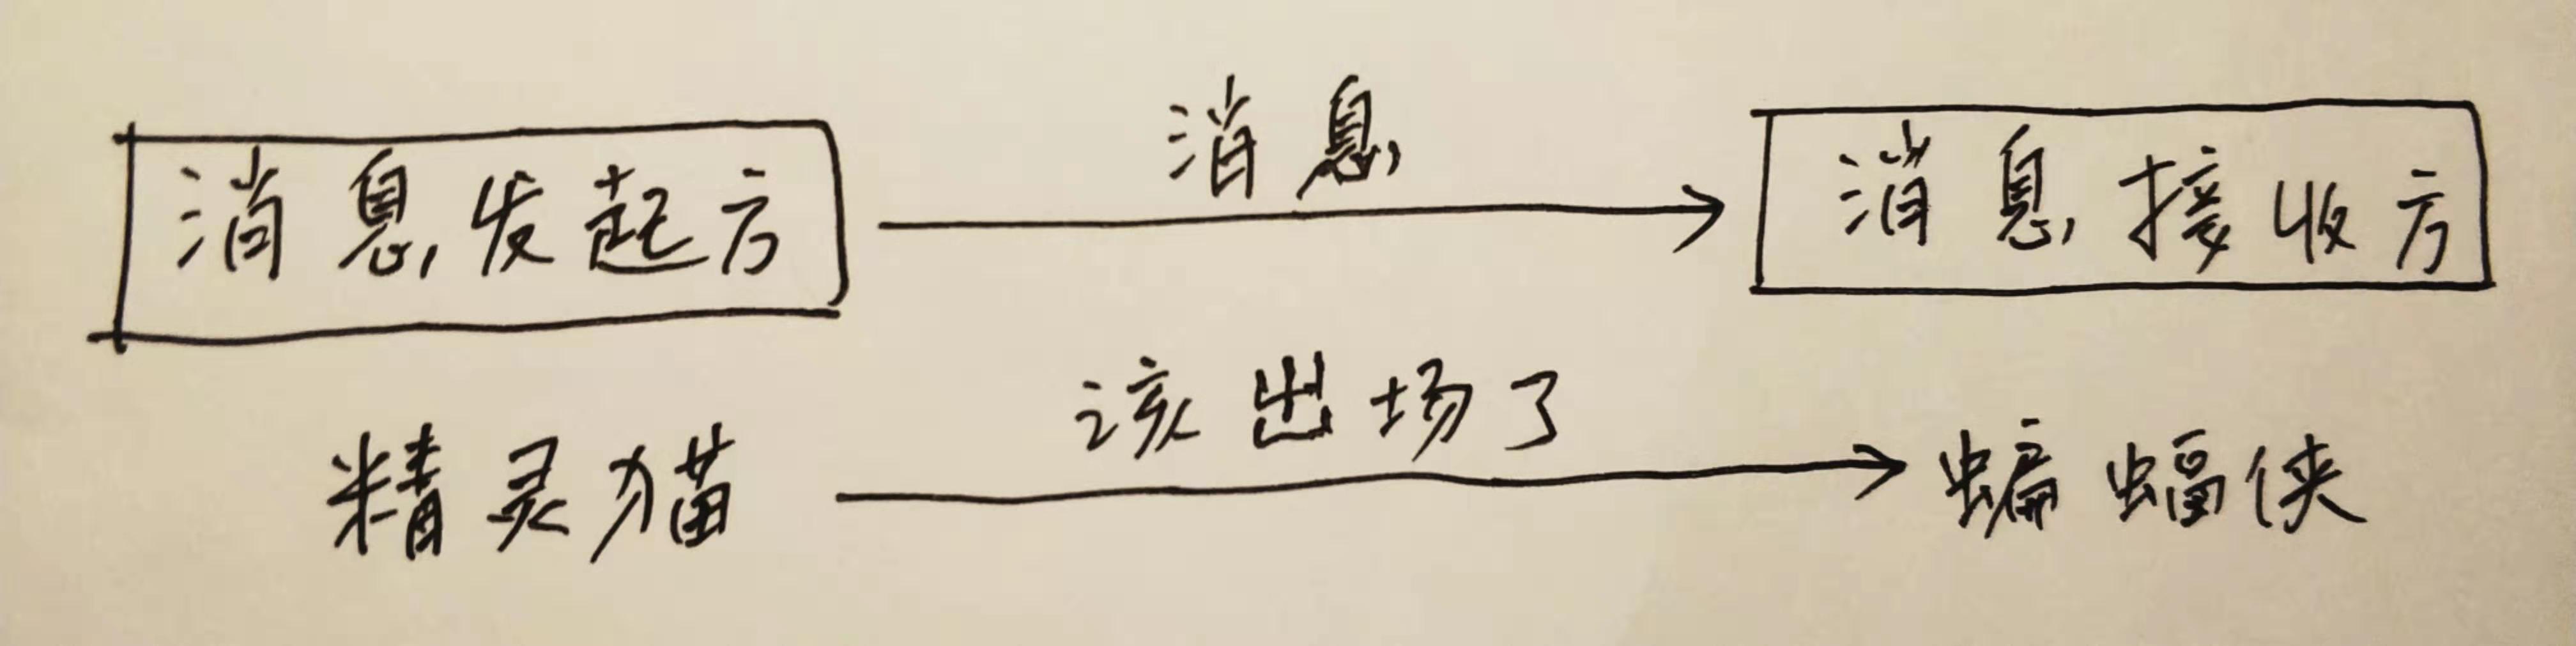 消息
消息发起方 消息接收方
该出场了
精灵猫 蝙蝠侠